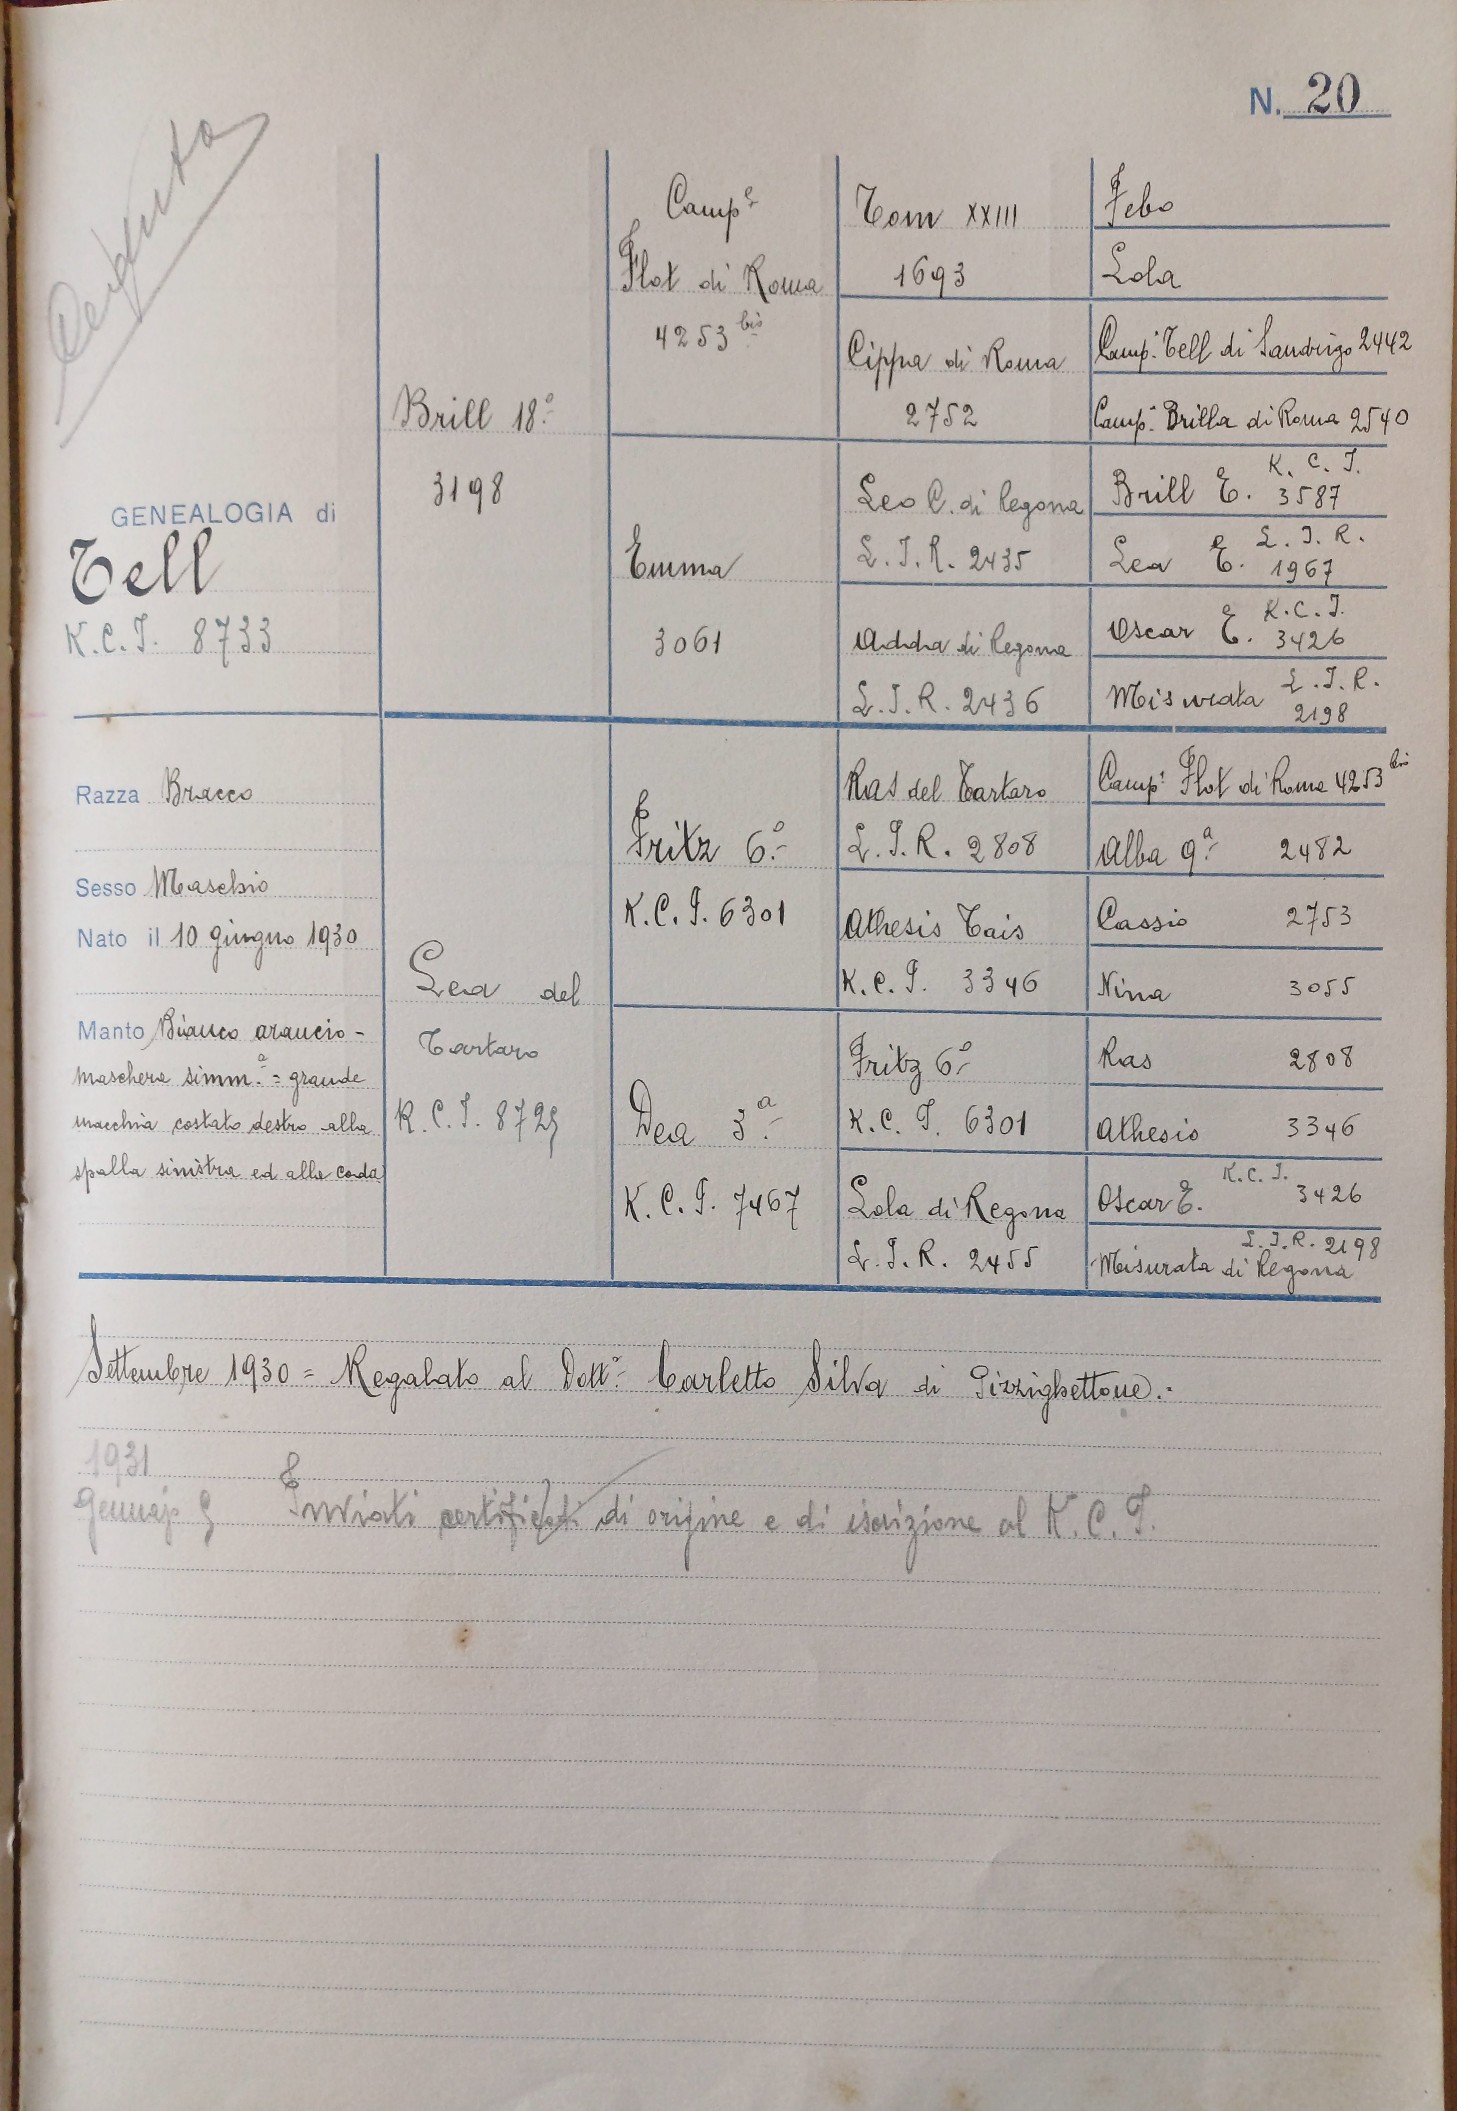 N. 20
GENEALOGIA di
Tell
K.C.I. 8733
Razza Bracco
Sesso Maschio
Nato il 10 giugno 1930
Manto Bianco arancio -
maschera simm.a = grande
macchia costato destro alla
spalla sinistra ed alla coda
Brill 18.o
3198
Lea del
Tartaro
K.C.I. 8725
Camp.e
Flot di Roma
4253 bis
Emma
3061
Fritz 6.o
K.C.I. 6301
Dea 3.a
K.C.I. 7467
Tom XXIII
1693
Cippa di Roma
2752
Leo C. di Regona
L.I.R. 2435
Adda di Regona
L.I.R. 2436
Ras del Tartaro
L.I.R. 2808
Athesis Tais
K.C.I. 3346
Fritz 6.o
K.C.I. 6301
Lola di Regona
L.I.R. 2455
Febo
Lola
Camp.e Tell di Sandrigo 2442
Camp.e Brilla di Roma 2540
Brill E. K.C.I. 3587
Lea E. L.I.R. 1967
Oscar E. K.C.I. 3426
Misurata L.I.R. 2198
Camp.e Flot di Roma 4253 bis
Alba 9.a 2482
Cassio 2753
Nina 3055
Ras 2808
Athesio 3346
Oscar E. K.C.I. 3426
Misurata di Regona L.I.R. 2198
Settembre 1930 = Regalato al Dott.r Carletto Silva di Pizzighettone.=
1931
Gennajo 5 Inviati certificati di origine e di iscrizione al K.C.I.